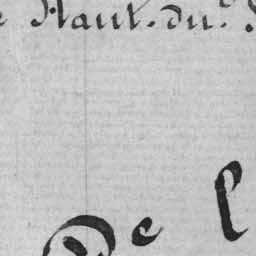 Haut. du.
De l